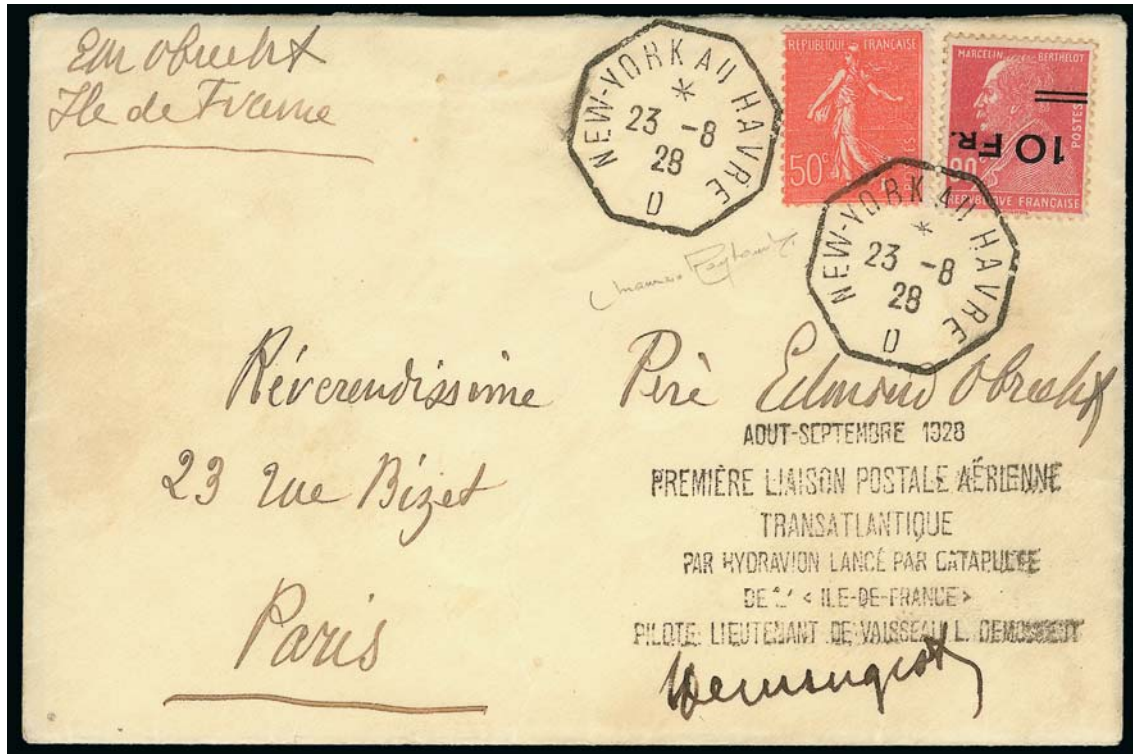 Edm Obrecht
Ile de France
NEW-YORK AU HAVRE
*
23 -8
28
D
REPUBLIQUE FRANÇAISE
50c
POSTES
MARCELIN BERTHELOT
POSTES
10 FR.
90
REPUBLIQUE FRANÇAISE
NEW-YORK AU HAVRE
*
23 -8
28
D
Réverendissime Père Edmond Obrecht
23 rue Bizet
Paris
AOUT-SEPTEMBRE 1928
PREMIÈRE LIAISON POSTALE AÉRIENNE
TRANSATLANTIQUE
PAR HYDRAVION LANCÉ PAR CATAPULTE
DE L' < ILE-DE-FRANCE >
PILOTE: LIEUTENANT DE VAISSEAU L. DEMOUGEOT
Demougeot